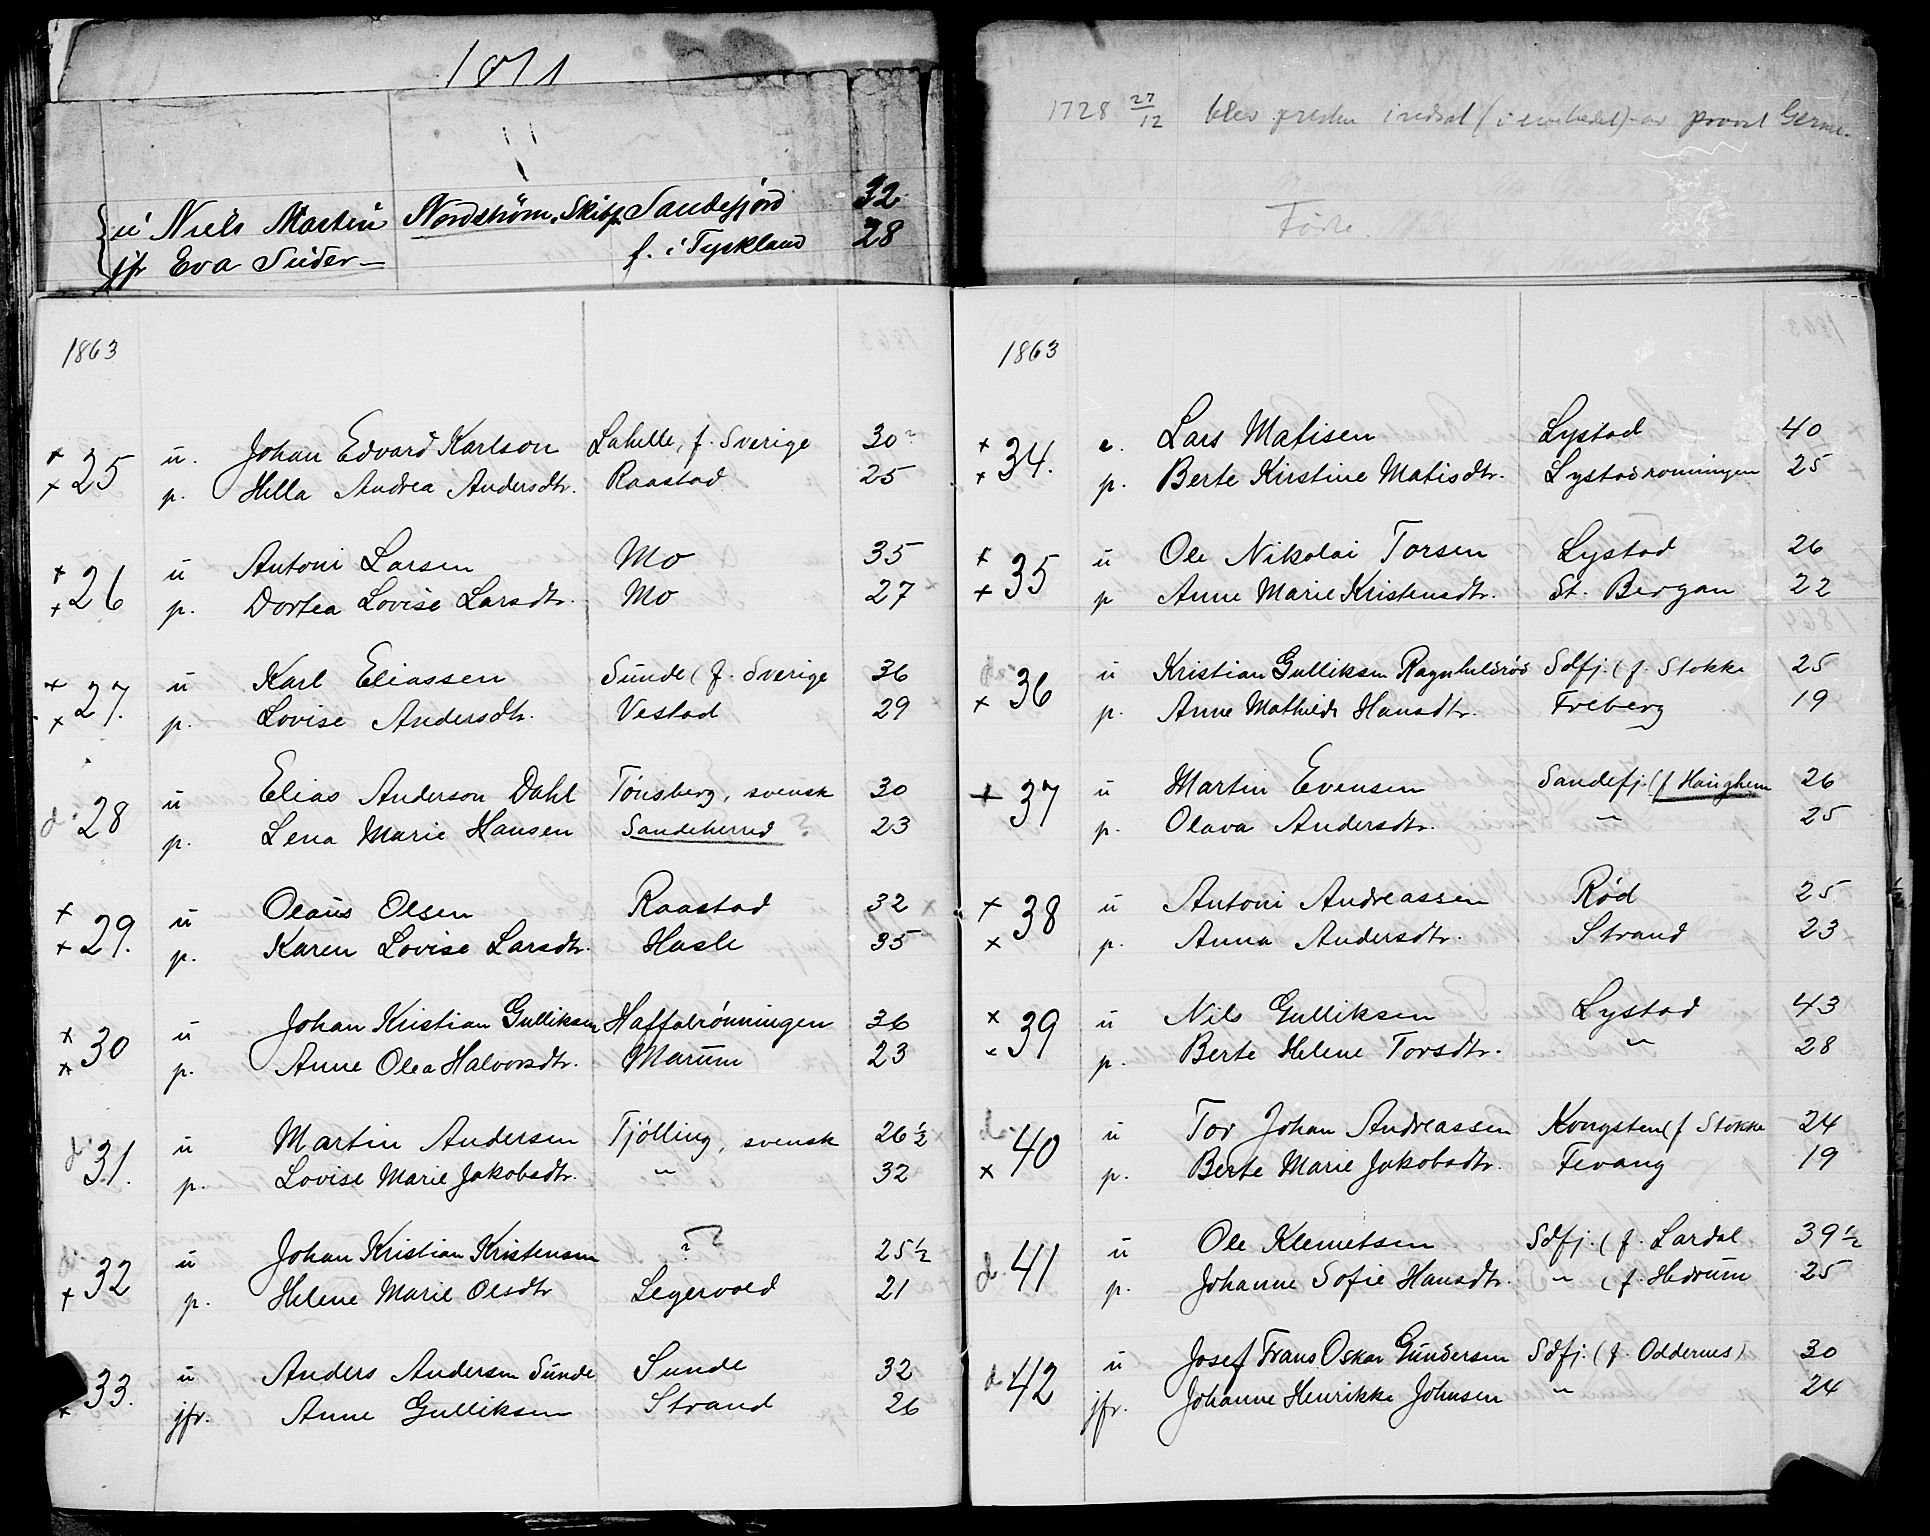 1871
ü Niels Martin Nordstrøm, Skibsf. Sandefjord 32
jfr Eva Süder — f. i Tyskland 28
1863
25 u. Johan Edvard Karlson Lahelle, f. Sverige 30
p. Hella Andrea Andersdtr. Raastad 25
26 ü Antoni Larsen Mo 35
p. Dortea Lovise Larsdtr. Mo 27
27. ü Karl Eliassen Sunde (f. Sverige 36
p. Lovise Andersdtr. Vestad 29
28 ü Elias Anderson Dahl Tönsberg, svensk 30
p. Lena Marie Hansen Sandeherred ? 23
29. ü Olaüs Olsen Raastad 32
p. Karen Lovise Larsdtr. Hasle 35
30 ü Johan Kristian Gulliksen Haffalrönningen 36
p. Anne Olea Halvorsdtr. Marüm 23
31. ü Martin Andersen Tjölling, svensk 26 ½
p. Lovise Marie Jakobsdtr. " 32
32 ü Johan Kristian Kristensen ? 25 ½
p. Helene Marie Olsdtr Legervold 21
33. ü Anders Andersen Sünde Sunde 32
jfr. Anne Gulliksen Strand 26
1728 27/12 blev presten indsat av provst
Föste.
1863
34. e. Lars Matisen Lystad 40
p. Berte Kirstine Matisdtr. Lystadronningen 25
35 ü Ole Nikolai Torsen Lystad 26
p Anne Marie Kristensdtr. St. Bergan 22
36 ü Kristian Gulliksen Ragnhildsröd Sdfj. (f. Stokke 25
p. Anne Mathilde Hansdtr. Freberg 19
37 ü Martin Evensen Sandefj. (f Haughem 26
p. Olava Andersdtr. " 25
38 ü Antoni Andreassen Rød 25
p. Anna Andersdtr. Strand 23
39 ü Nils Gulliksen Lystad 43
p. Berte Helene Torsdtr. " 28
40 ü Tor Johan Andreassen Kongsten (f Stokke 24
p. Berte Marie Jakobsdtr. Fevang 19
41 ü Ole Klemetsen Sdfj. (f. Lardal 39 ½
p. Johanne Sofie Hansdtr. " (f. Hedrüm 25
42 ü Josef Frans Oskar Gündersen Sdfj. (f. Oddernes) 30
jfr. Johanne Henrikke Johnsen " 24